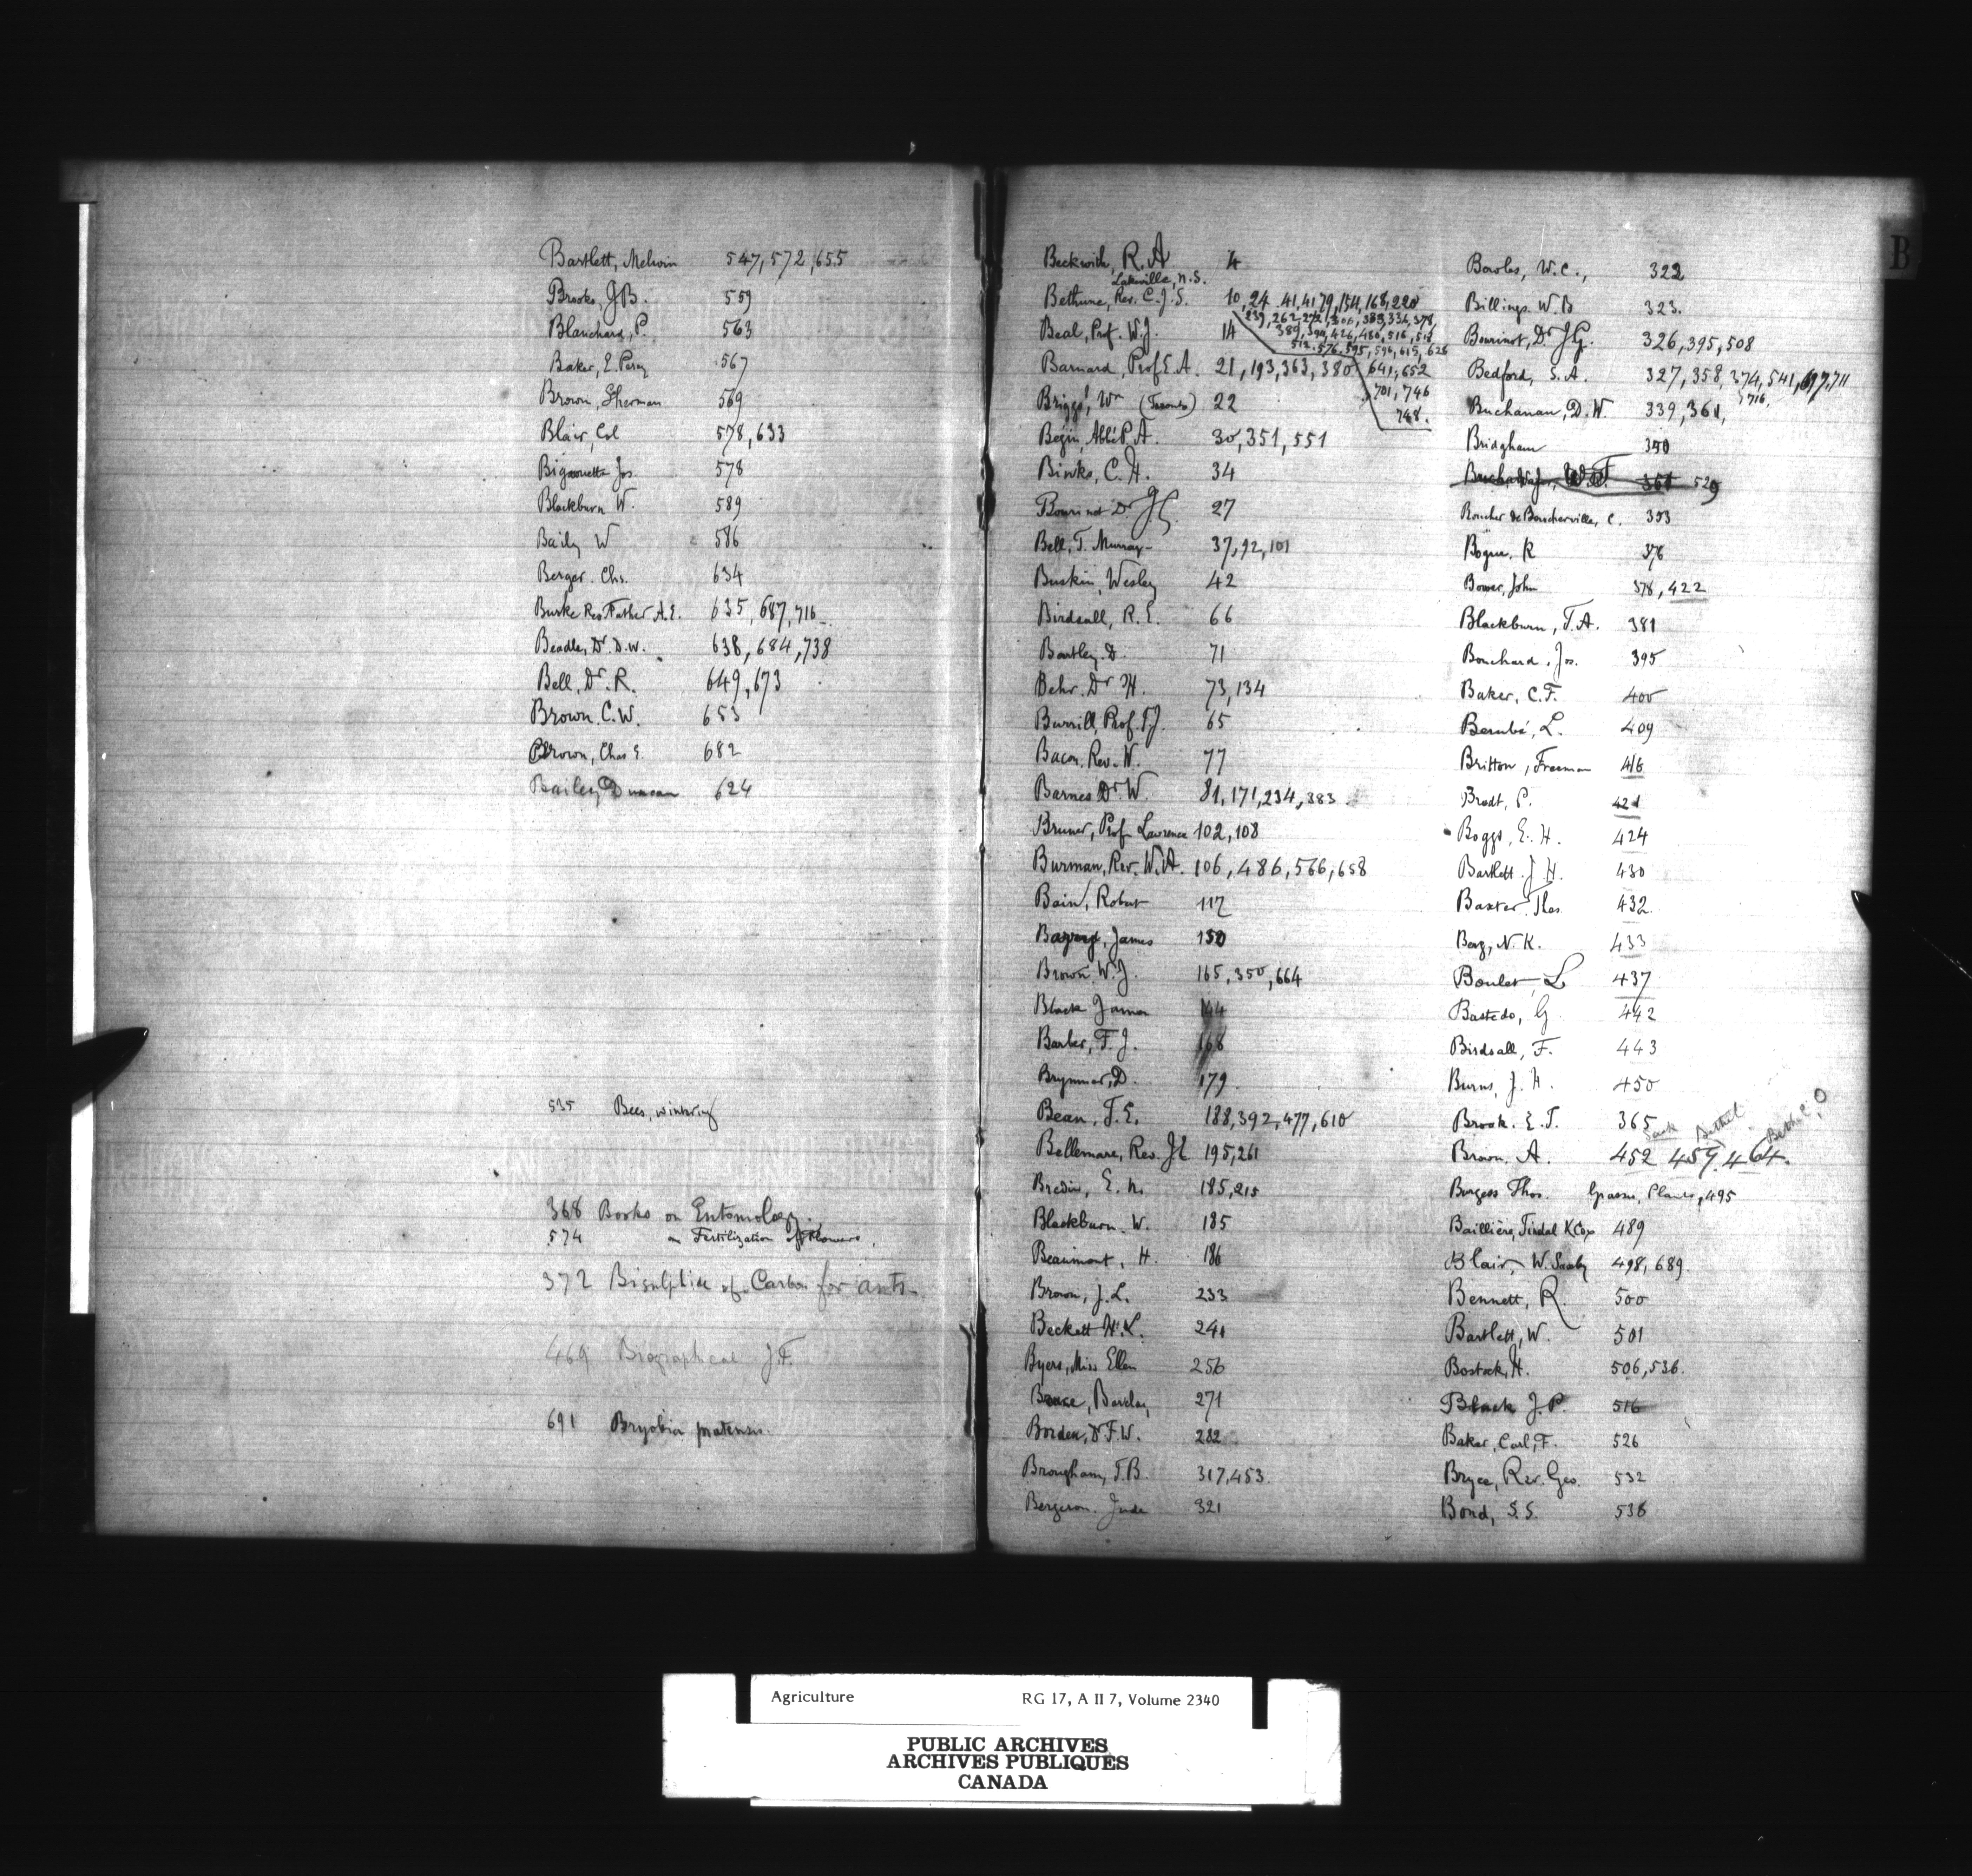 Bartlett, Melvin 547, 572, 655
Brooks, J.B. 559
Blanchard, P. 563
Baker, E. Percy 567
Brown, Sherman 569
Blair, Col 578, 633
Bigaouette Jos. 578
Blackburn W. 589
Baily W 586
Berger. Chs. 634
Burke Rev. Father A.E. 635, 687, 716
Beadle, Dr. D.W. 638, 684, 738
Bell, Dr. R. 649, 673
Brown. C.W. 653
Brown, Chas E. 682
Bailey, Duncan 624
535 Bees, wintering
368 Books on Entomology.
574 on Fertilization of Flowers.
372 Bisulphide of Carbon for ants.
469 Biographical J.F.
691 Bryobia pratensis.
B
Beckwith, R. A 4
Lakeville, N.S.
Bethune, Rev. C.J.S. 10, 24, 41, 41, 79, 154, 168, 220
Beal, Prof. W.J. 14
Barnard, Prof E.A. 21, 193, 363, 380 641, 652
701, 746
Briggs, Wm (Toronto) 22
748.
Begin, Abbé P.A. 30, 351, 551
Binks, C. H. 34
Bourinot Dr J.G. 27
Bell, T. Murray 37, 92, 101
Buskin, Wesley 42
Birdsall, R. E. 66
Bartley. D. 71
Behr. Dr H. 73, 134
Burrill, Prof. T.J. 65
Bacon, Rev. W. 77
Barnes Dr W. 81, 171, 234, 383
Bruner, Prof Lawrence 102, 108
Burman, Rev. W.A. 106, 486, 566, 658
Bain, Robert 112
James 150
Brown W.J. 165, 350, 664
Black James 144
Barber, F. J. 168
Brymner, D. 179
Bean, T. E. 188, 392, 477, 610
Bellemare, Rev. J E 195, 261
Bredin, E. N. 185, 215
Blackburn W. 185
Beaumont, H. 186
Brown, J. L. 233
Beckett H.L. 241
Byers, Miss Ellen 256
Barclay 271
Borden, Dr F.W. 282
Brougham, T.B. 317, 453.
Bergeron. Jude 321
Bowles, W.C., 322
Billings. W.B 323.
Bourinot, Dr J.G. 326, 395, 508
Bedford, S. A. 327, 358, 374, 541, 697, 711
716,
Buchanan, D.W. 339, 361,
Bridgham 350
361 529
Boucher de Boucherville, C. 353
Bogue. R 376
Bower, John 378, 422
Blackburn, T.A. 381
Bouchard, Jos. 395
Baker, C.F. 400
Bernubé, L. 409
Britton, Freeman 416
Brodt, P. 421
Boggs, E. H. 424
Bartlett. J. H. 430
Baxter Thos. 432
Berg, N. K. 433
Boulet, L 437
Bastedo, G 442
Birdsall, F. 443
Burns, J. H. 450
Brook. E.T. 365
Brown. A. 452 457, 464.
Burgess Thos. Grasses, Plants, 495
Baillière, Tindal & Cox 489
Blair, W. Saxby 498, 689.
Bennett, R. 500
Bartlett, W. 501
Bostock, H. 506, 536.
Black J. P. 516
Baker, Carl, F. 526
Bryce, Rev. Geo. 532
Bond, S. S. 538
Agriculture RG 17, A II 7, Volume 2340
PUBLIC ARCHIVES
ARCHIVES PUBLIQUES
CANADA